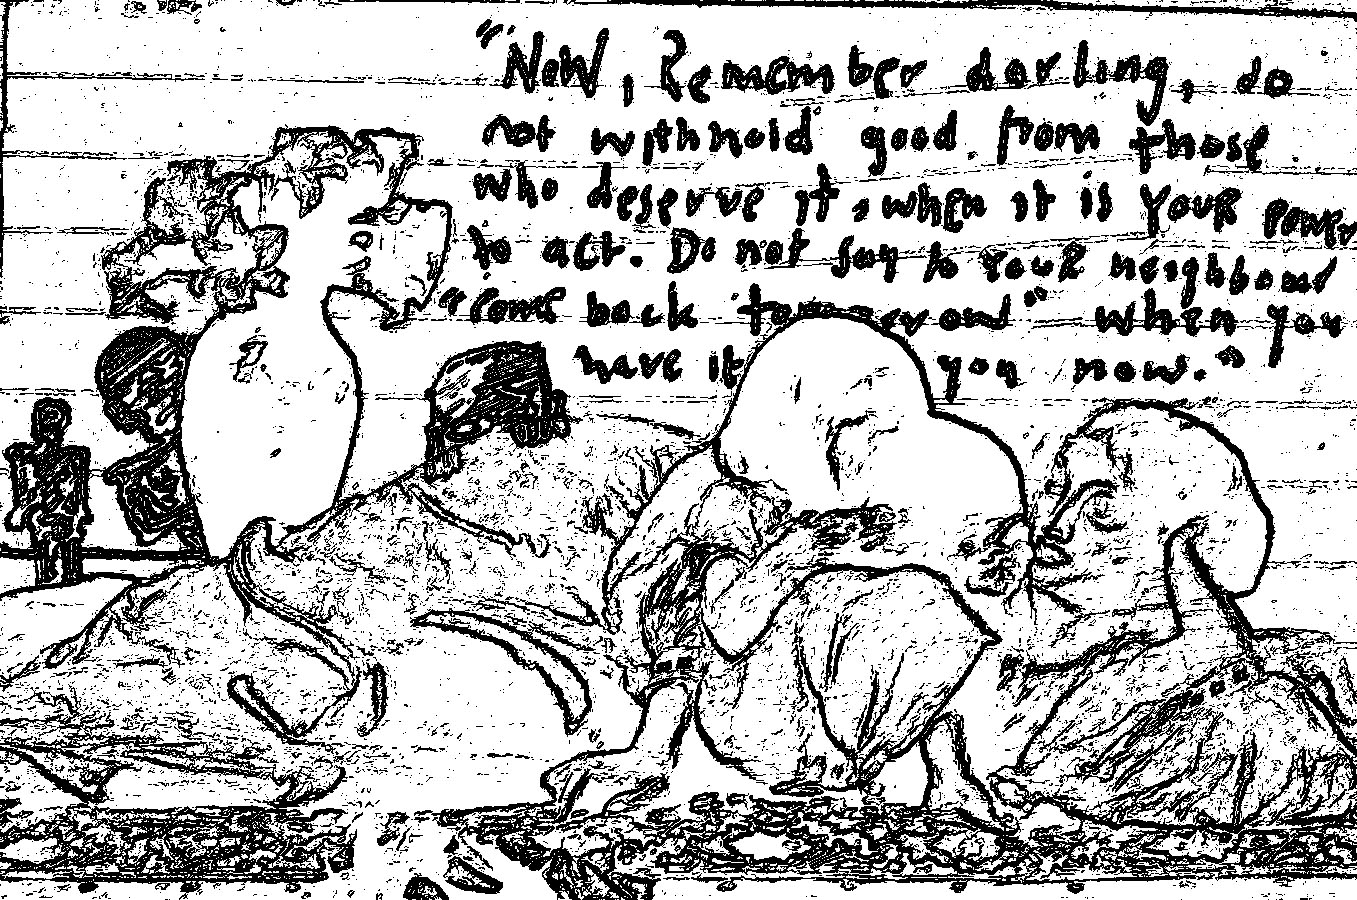 "Now, Remember darling, do
not withhold good from those
who deserve it, when it is Your Power
to act. Do not say to Your neighbour
"come back tomorrow" when you
have it you now."